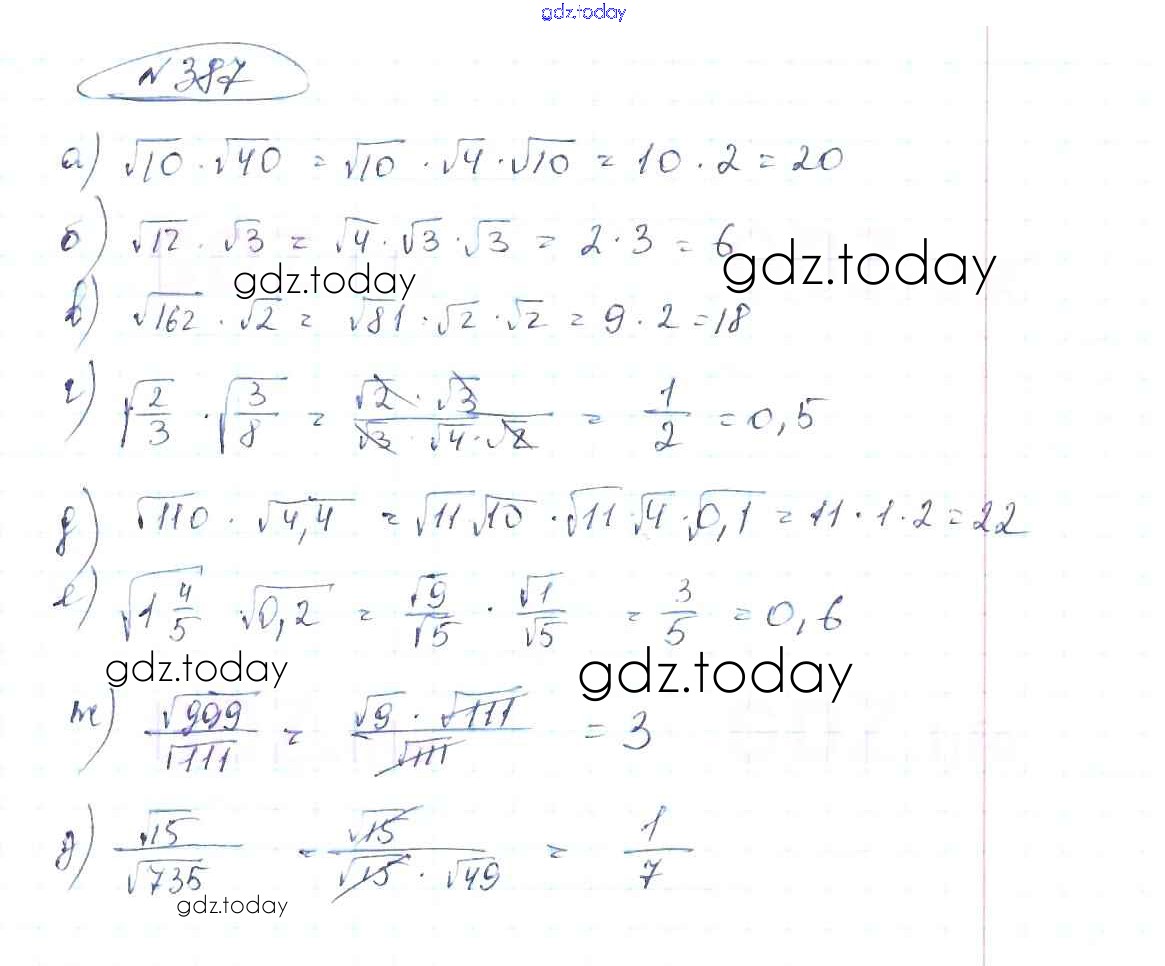 gdz.today
№387
а) √10 · √40 = √10 · √4 · √10 = 10 · 2 = 20
б) √12 · √3 = √4 · √3 · √3 = 2 · 3 = 6
gdz.today gdz.today
в) √162 · √2 = √81 · √2 · √2 = 9 · 2 = 18
г) √(2/3) · √(3/8) = (√2 · √3)/(√3 · √4 · √2) = 1/2 = 0,5
д) √110 · √4,4 = √11 √10 · √11 √4 · √0,1 = 11 · 1 · 2 = 22
е) √(1 4/5) √0,2 = √9/√5 · √1/√5 = 3/5 = 0,6
gdz.today gdz.today
ж) √999/√111 = (√9 · √111)/√111 = 3
з) √15/√735 = √15/(√15 · √49) = 1/7
gdz.today